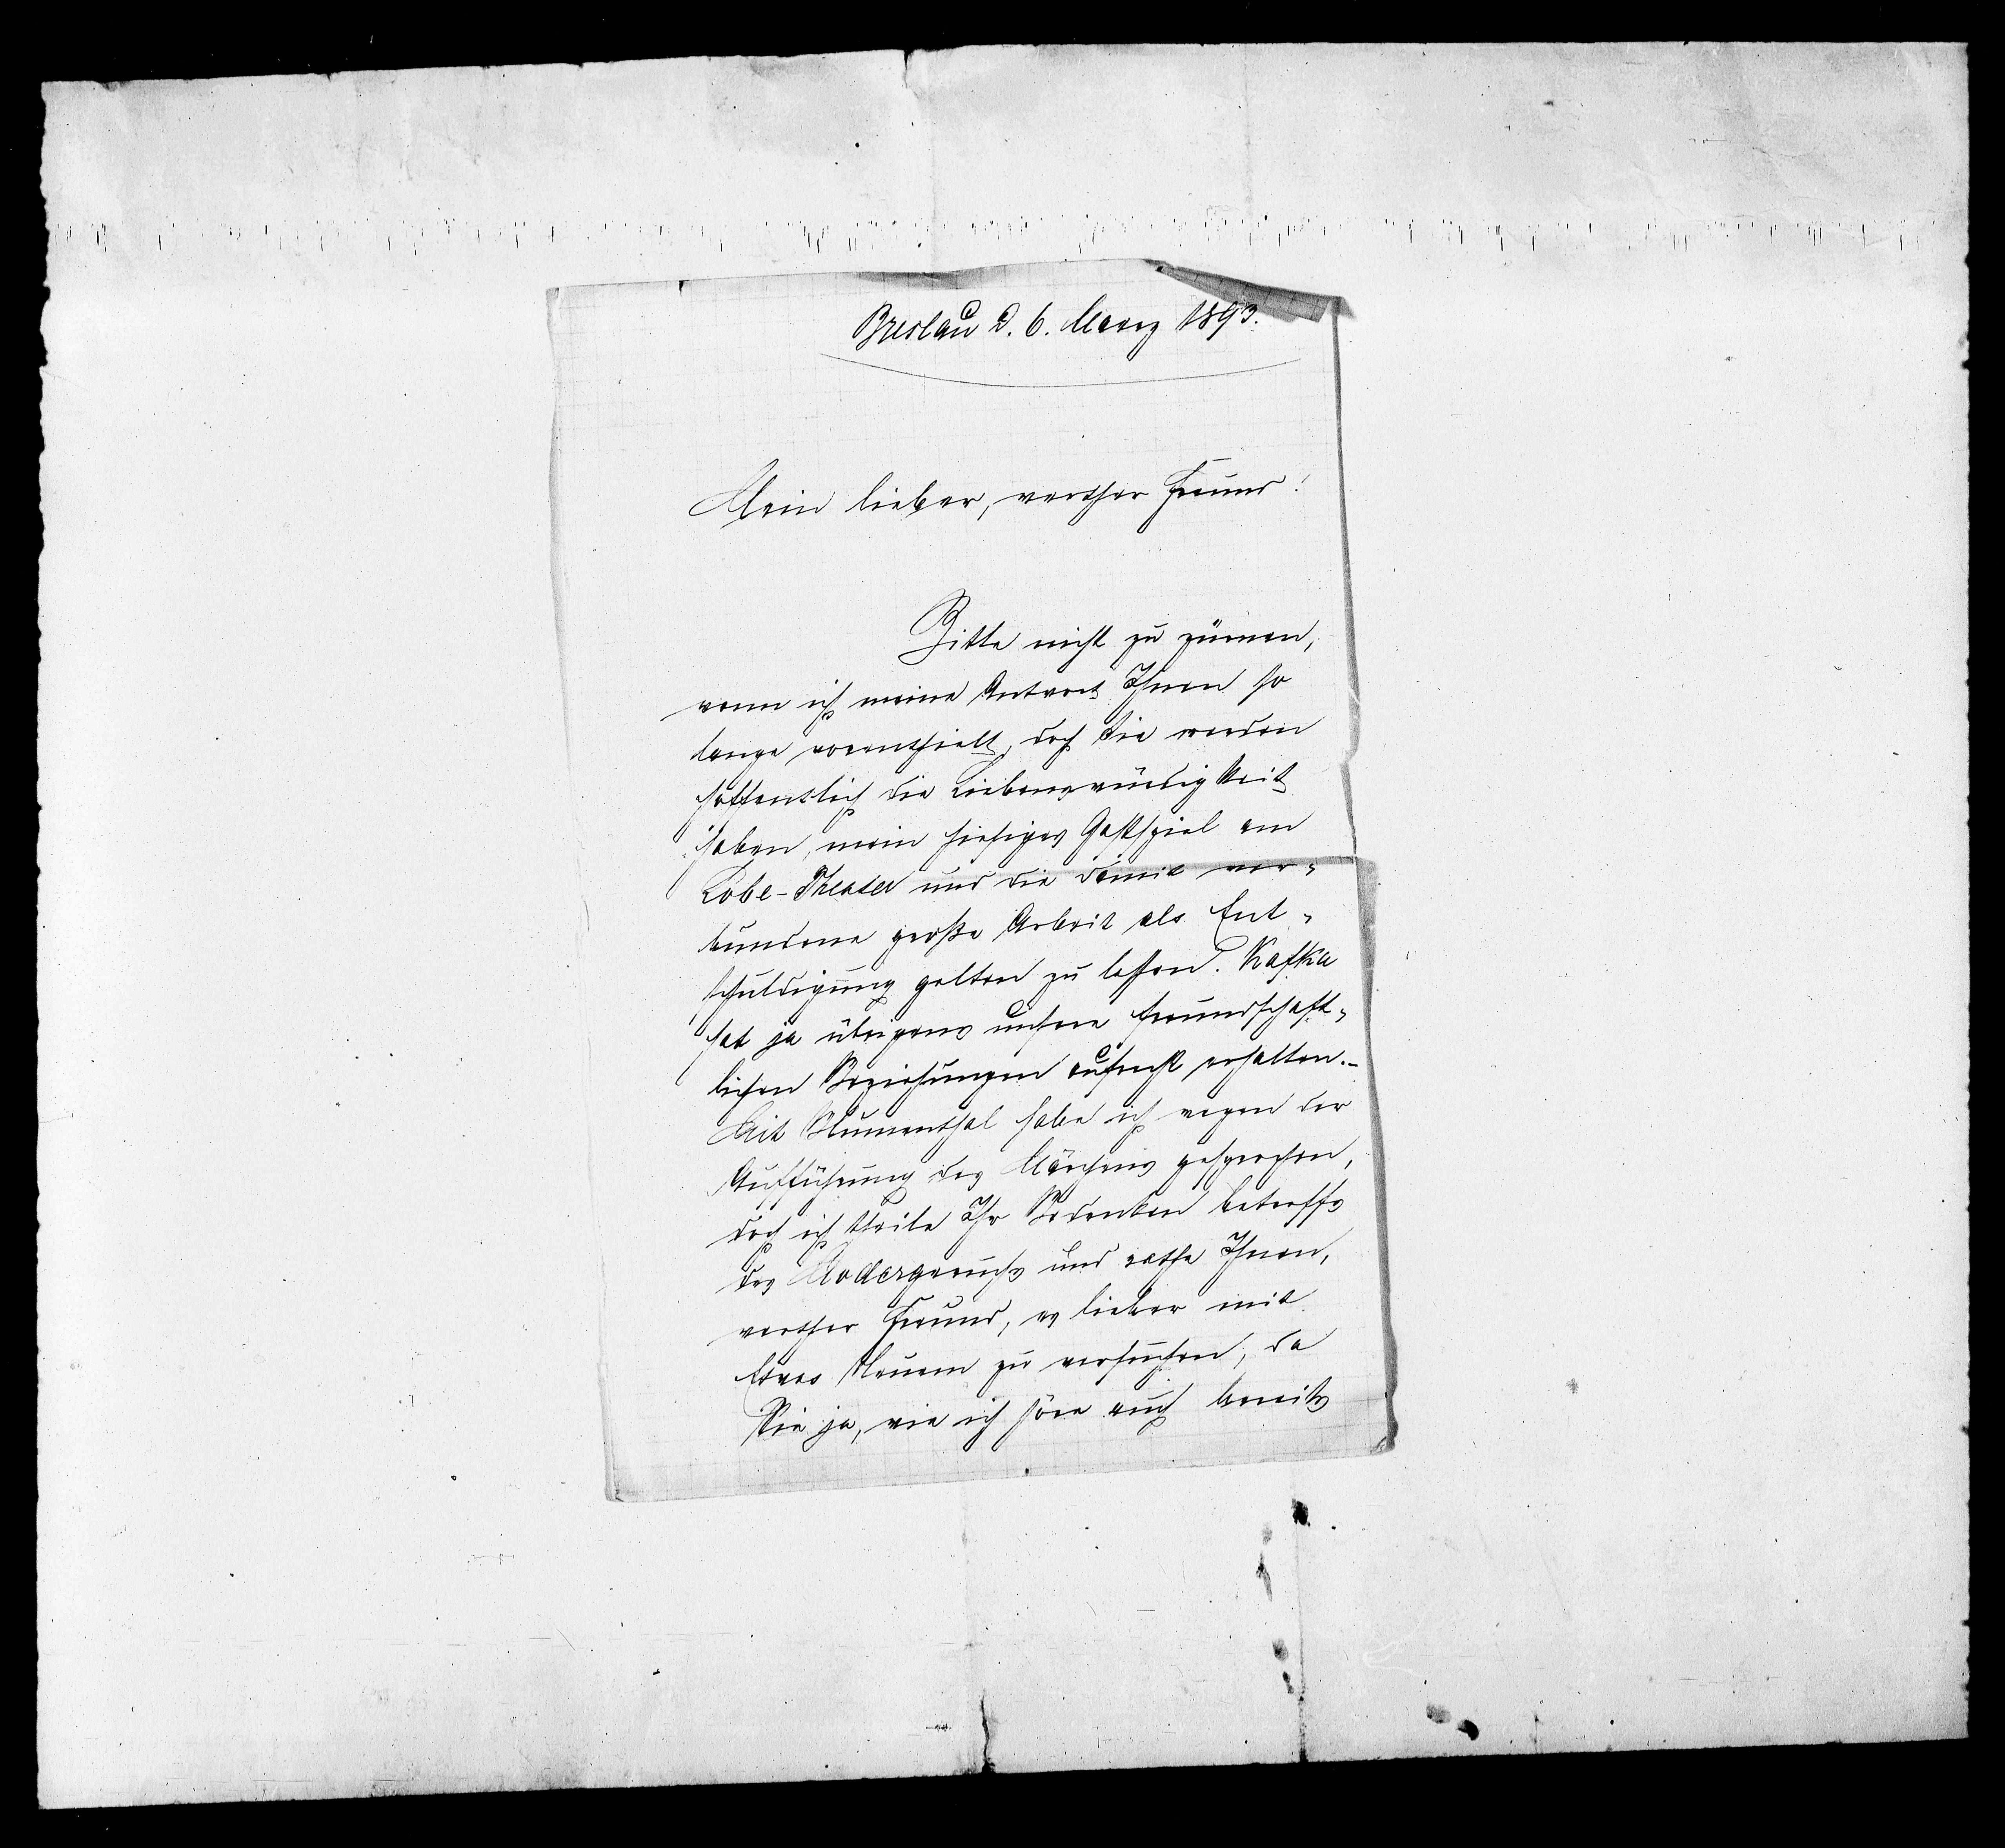 Breslau d. 6. Maerz 1893.
Mein lieber, werther Freund!
Bitte nicht zu zürnen,
wenn ich meine Antwort Ihnen so
lange vorenthielt, doch Sie werden
hoffentlich die Liebenswürdigkeit
haben, mein hiesiges Gastspiel am
Lobe-Theater und die damit ver-
bundene große Arbeit als Ent-
schuldigung gelten zu lassen. Kafka
hat ja übrigens unsere freundschaft-
lichen Beziehungen aufrecht erhalten.–
Mit Blumenthal habe ich wegen der
Aufführung des Märchens gesprochen,
doch ich theile Ihr Bedenken betreffs
des Modergeruchs und rathe Ihnen,
werther Freund, es lieber mit
Etwas Neuem zu versuchen, da
Sie ja, wie ich höre auch bereits